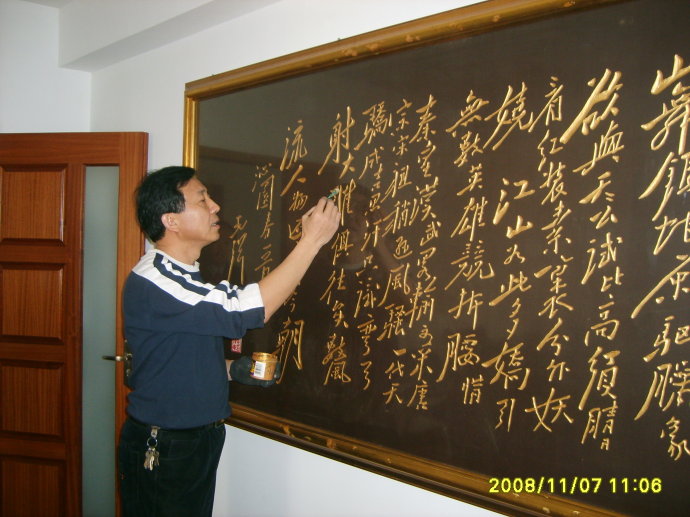 山舞銀蛇原馳臘象
欲與天公試比高須晴
看紅裝素裹分外妖
嬈 江山如此多嬌引
無數英雄競折腰惜
秦皇漢武略輸文采唐
宗宋祖稍遜風騷一代天
驕成吉思汗只識彎弓
射大雕俱往矣數風
流人物 今朝
沁園春
2008/11/07 11:06